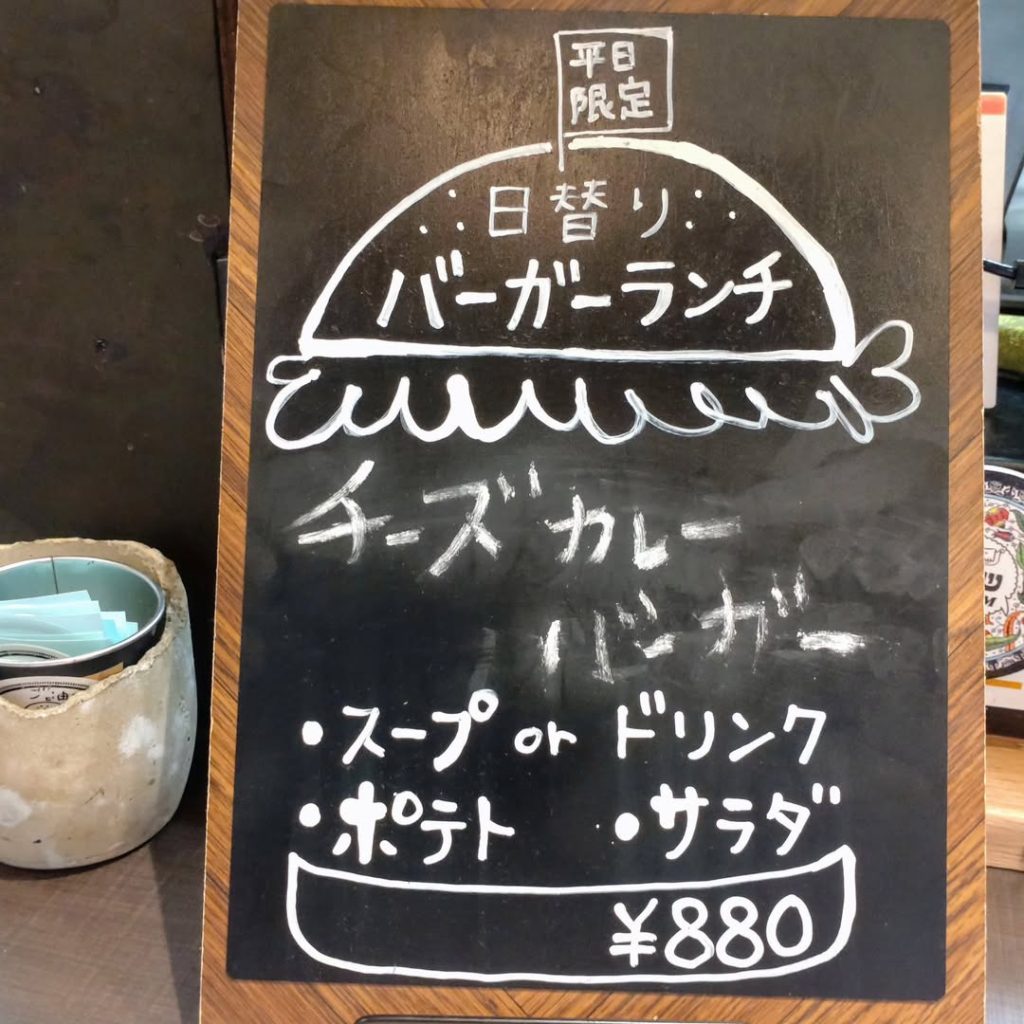 平日
限定
日替り
バーガーランチ
チーズカレー
バーガー
・スープ or ドリンク
・ポテト ・サラダ
¥880